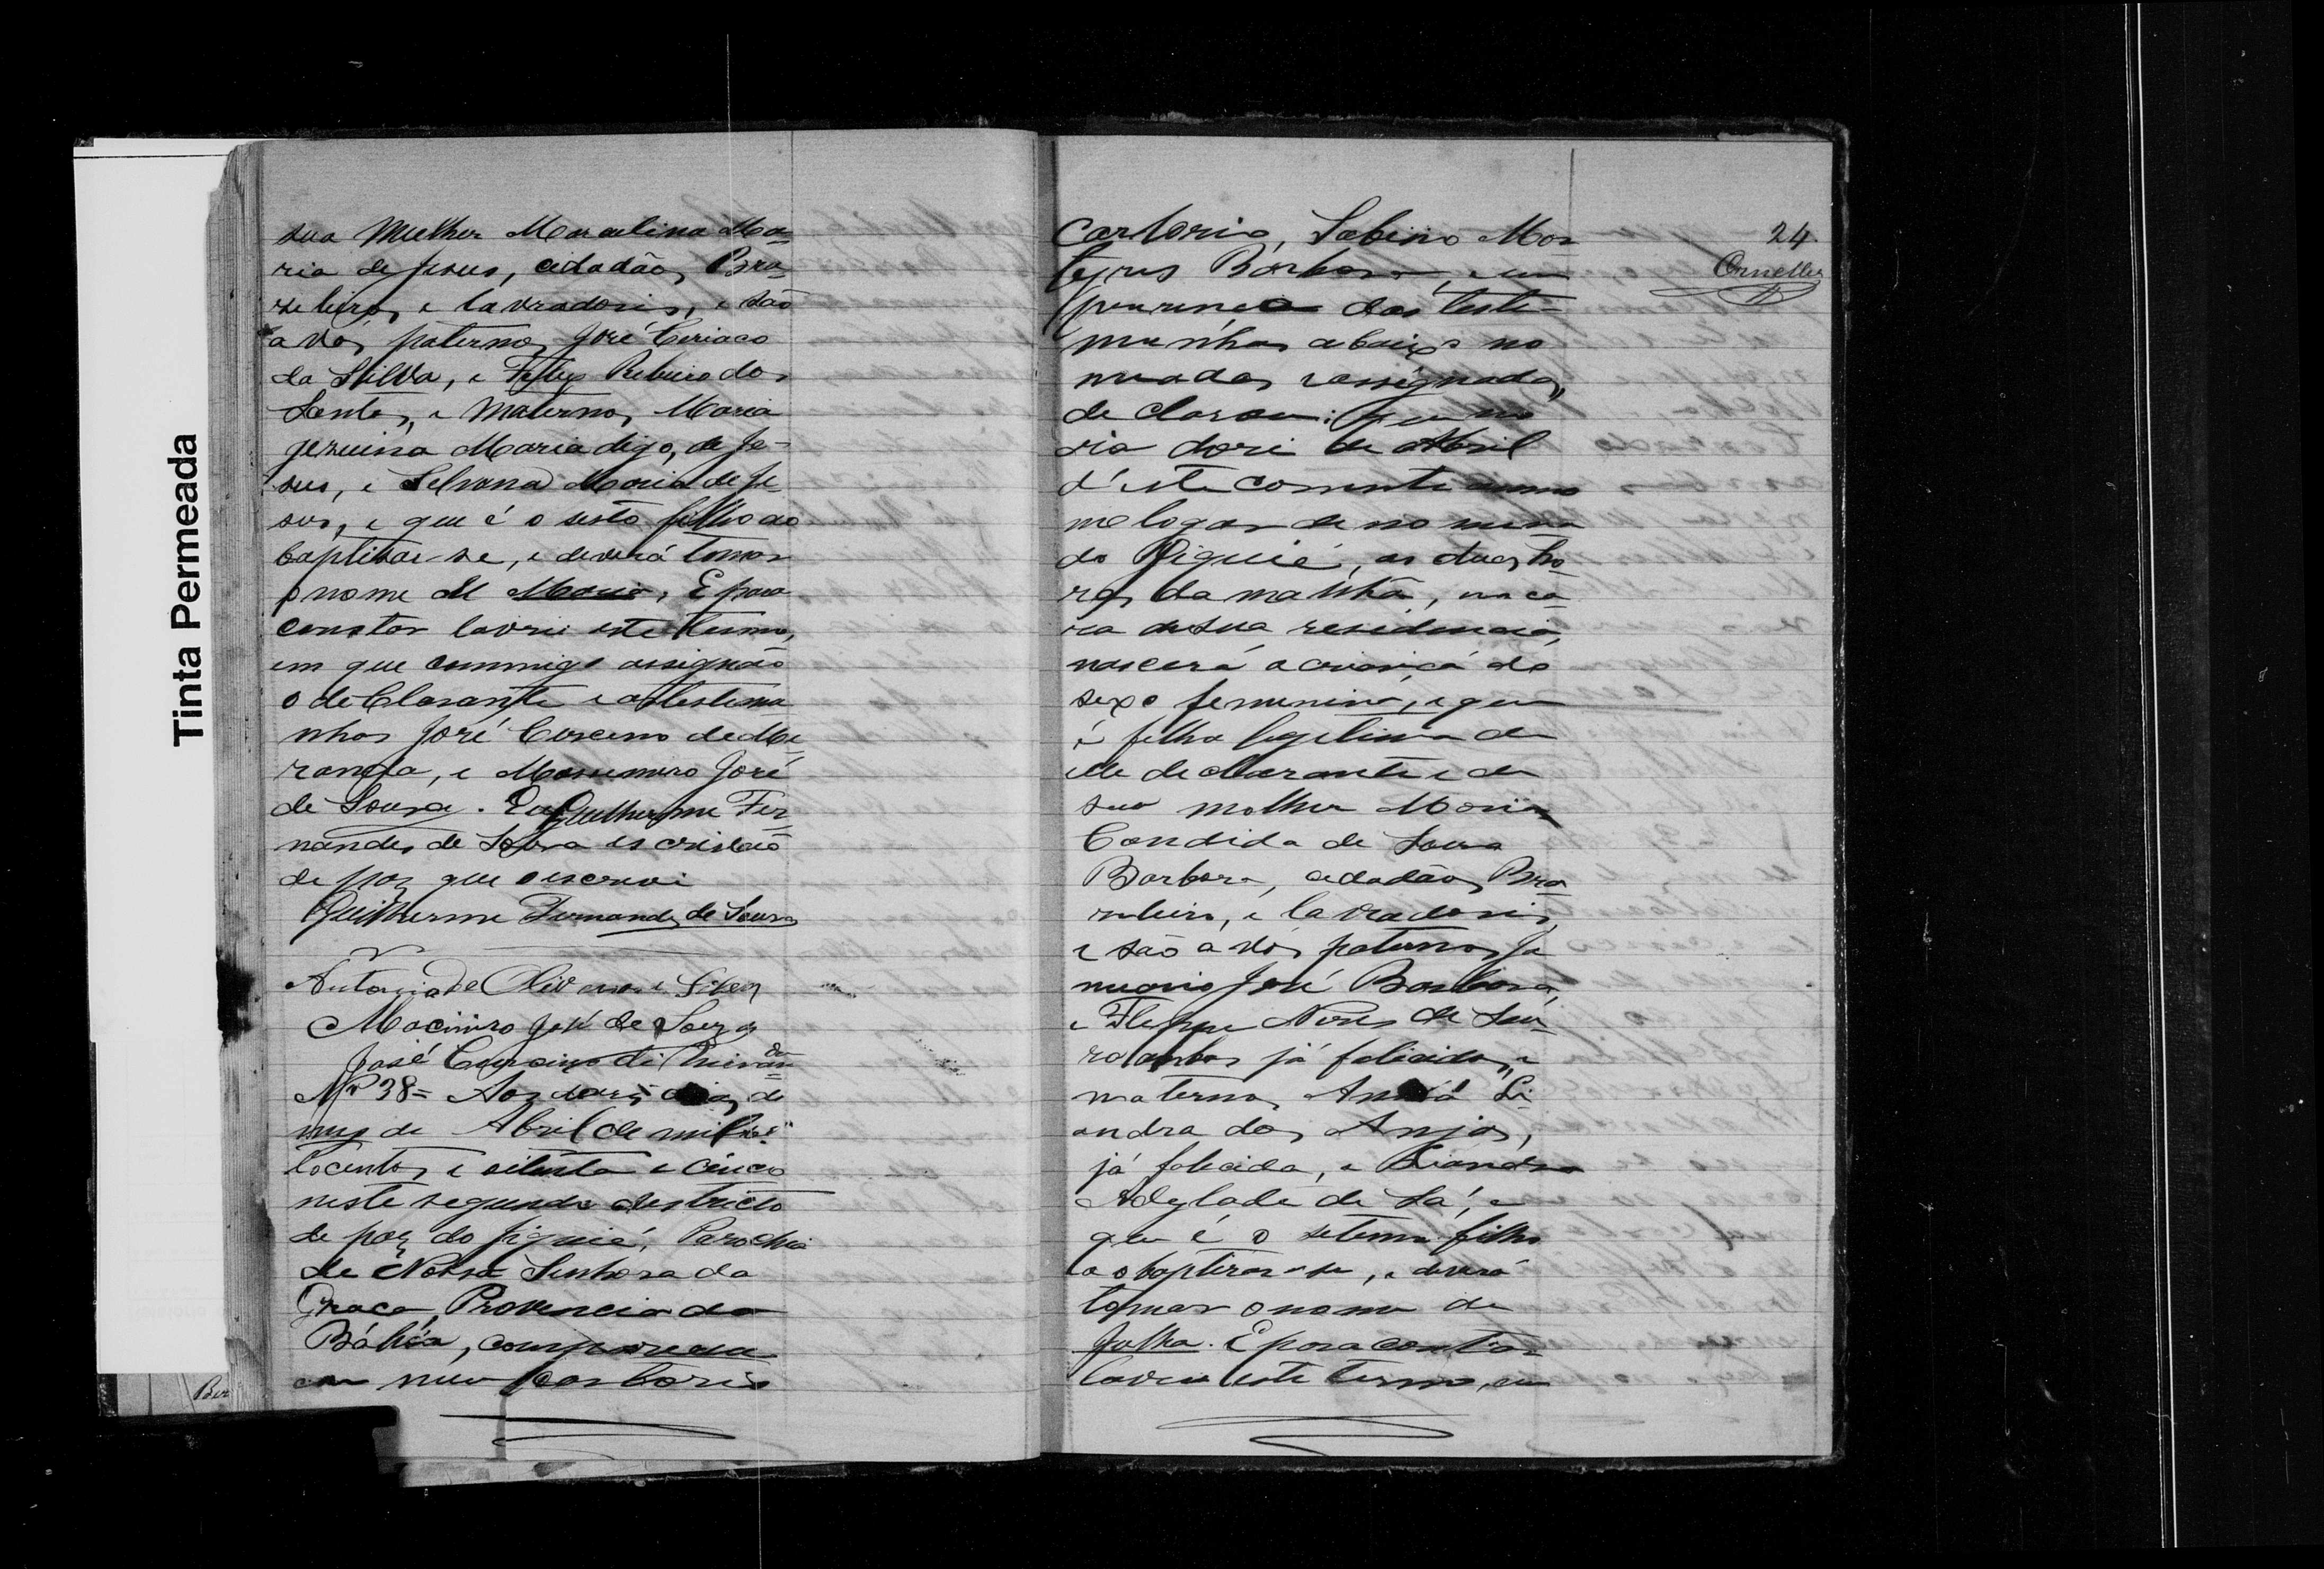 Tinta Permeada
sua Mulher Marcelina Ma-
ria de Jesus, cidadãos Bra-
zileiros e lavradores, e são
avós paternos José Ciriaco
da Silva, e Felix Ribeiro dos
Santos, e Maternos, Maria
Jezuina Maria digo, de Je-
sus, e Selvana Maria de Je-
sus, e que é o sesto filho ao
baptisar-se, e deverá tomar
o nome de Maria, E para
constar lavrei este termo,
em que commigo assignão
o declarante e as testemu
nhas José Curcino de Mi-
randa, e Maximiro José
de Souza. Eu Guilherme Fer-
nandes de Souza escrivão
de paz que o escrevi
Guilherme Fernandes de Souza
Antonio de Oliveira e Silva
Maciniro José de Souza
José Curcino de Miranda
Nº 38= Aos dias do
mez de Abril de mil
tocentos e oitenta e cinco
neste segundo destricto
de paz do Jiquié, Parochia
de Nossa Senhora da
Graça, Provencia da
Báhia, compareceu
em meu Cartorio
24
Cartorio, Sabino Mar
Barbosa, em
prezença das teste-
munhas abaixo no
meadas e assignadas,
declarou: que no
dia dose de Abril
d'este corrente anno
no logar denomina
do Jiquié, as duas ho-
ras da manhã, na ca-
za de sua residencia,
nascerá a criança do
sexo femenino, e que
é filha legitima de
elle declarante e de
sua molher Maria
Candida de Souza
Barbosa, cidadãos Bra-
zileiro, e lavradores,
e são avós paternos Ja
nuario José Barbosa,
e Nunes de
ambos já falicidos, e
maternos Anna Li-
andra dos Anjos,
já falicida, e Liandro
de Sá, e
que é o setimo filho
ao baptizar-se, e deverá
tomar o nome de
Julha. E para constar
lavrei este termo, em